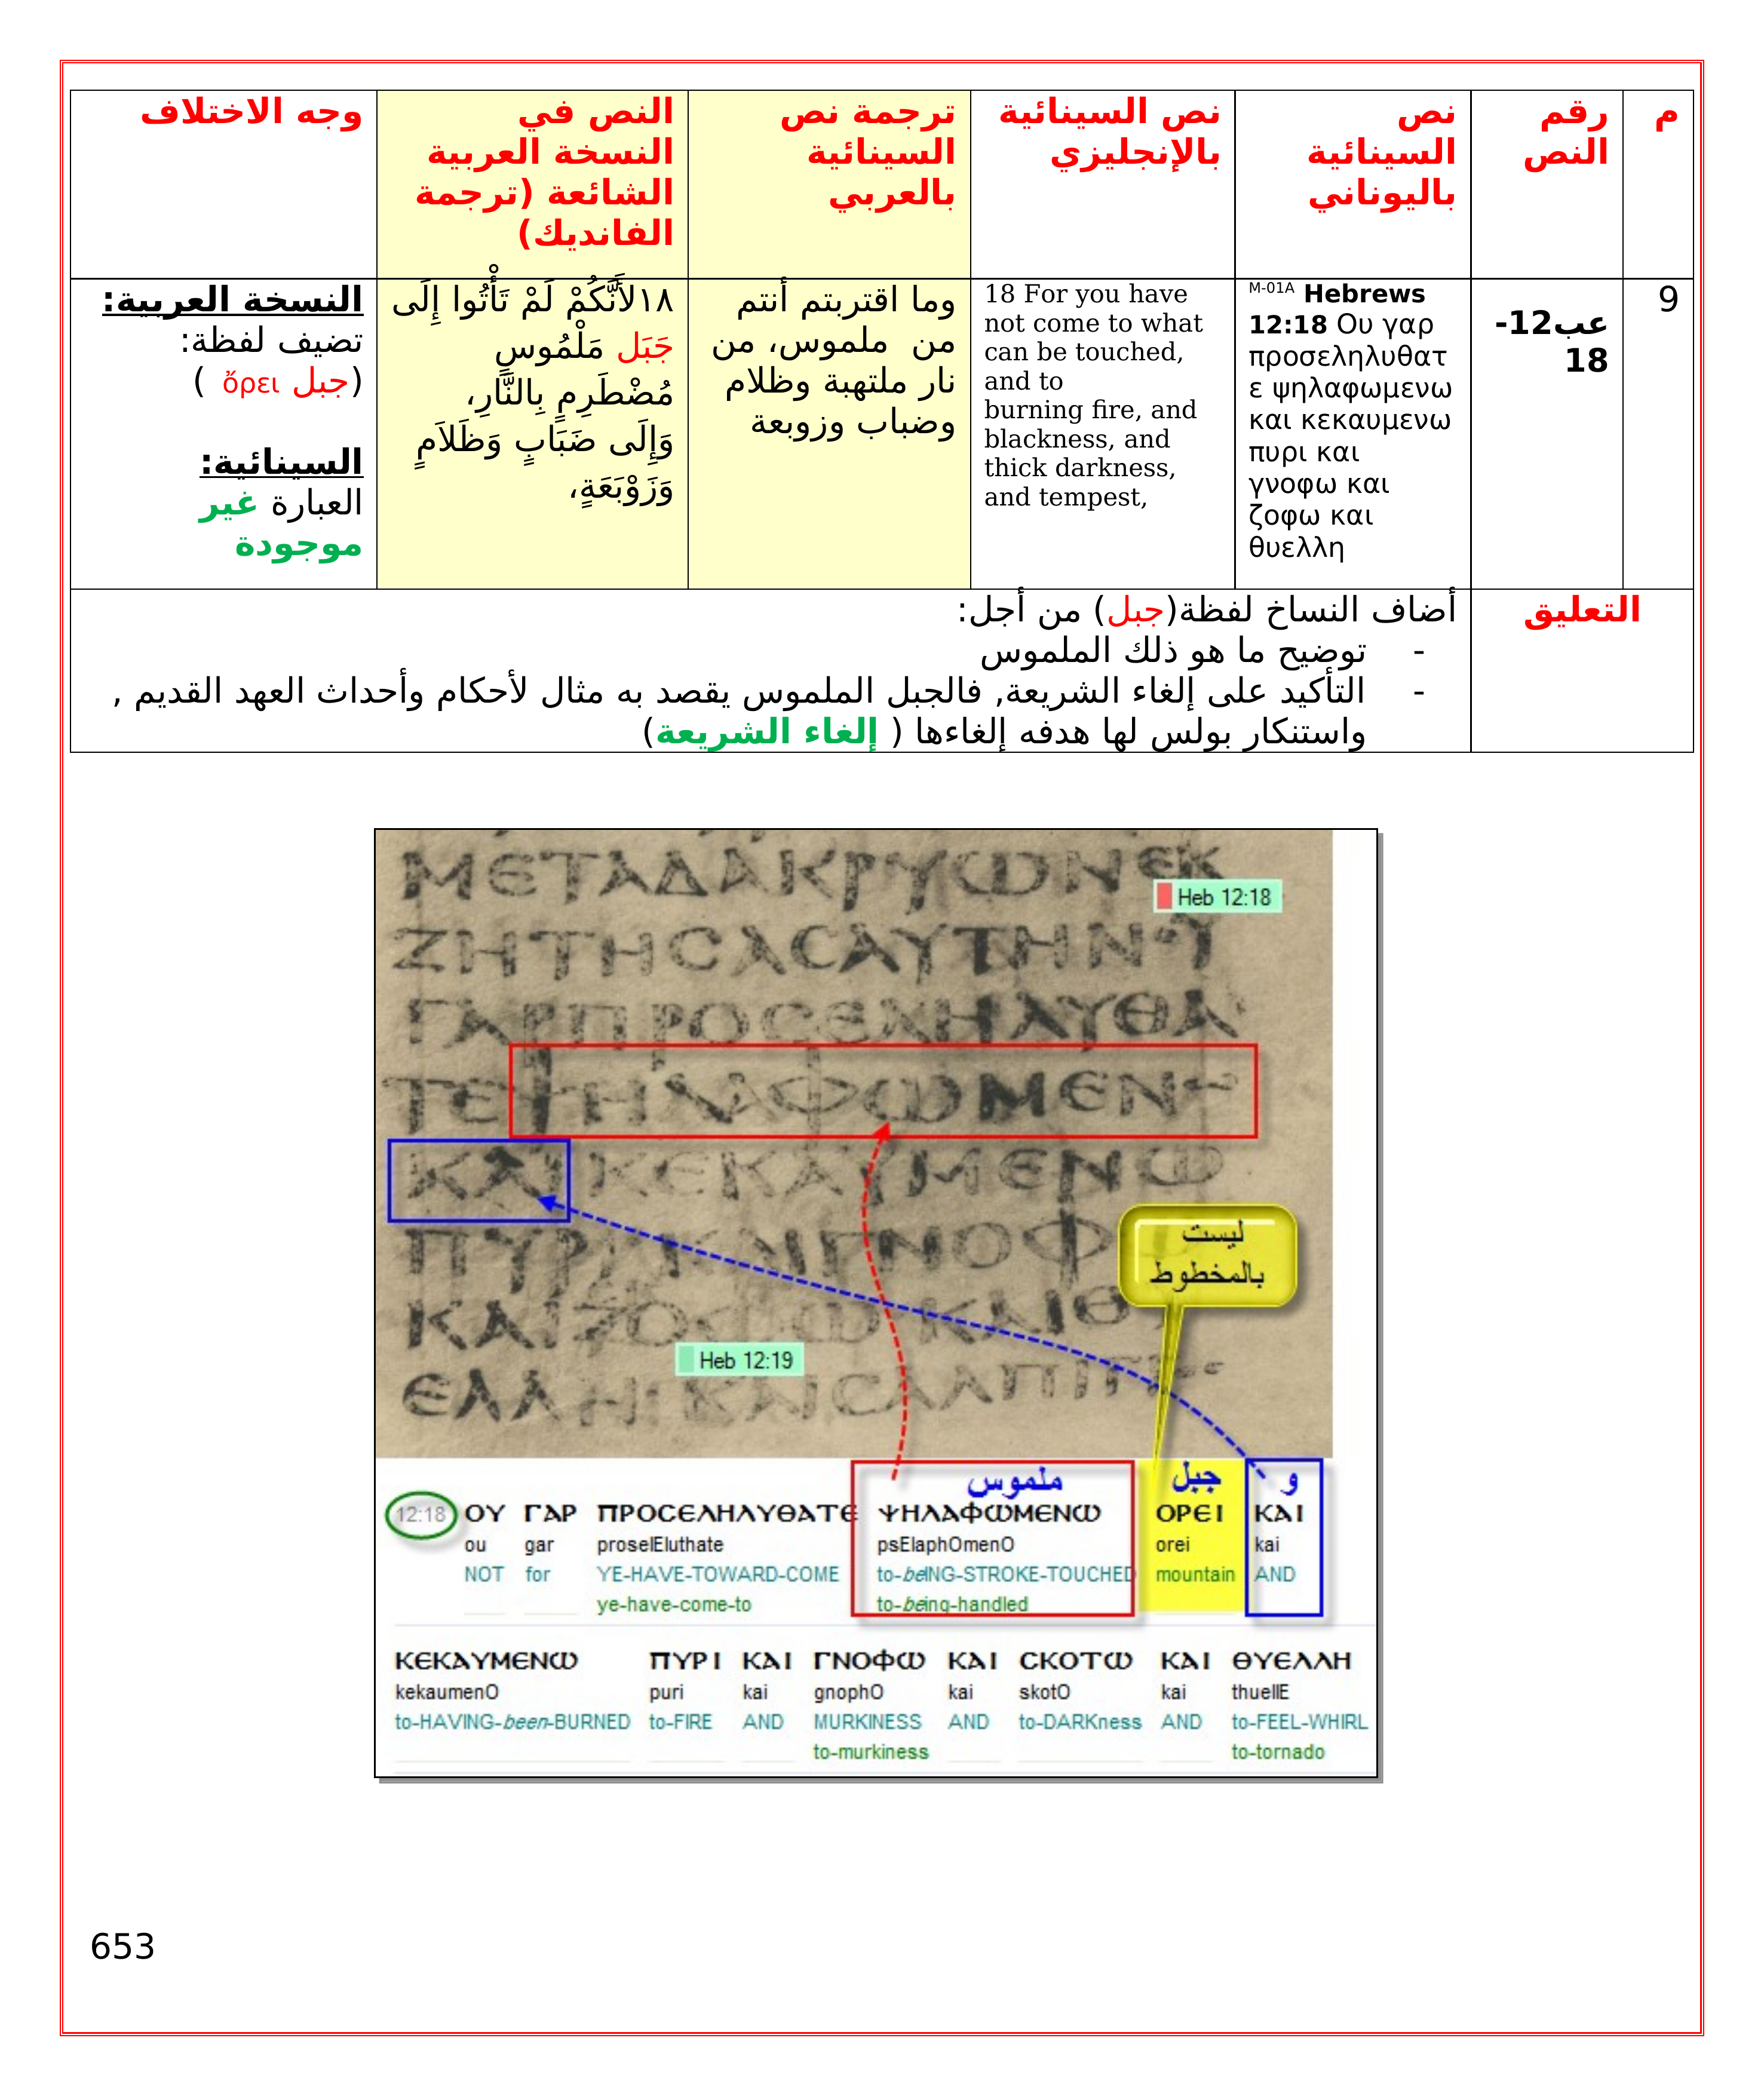 م
رقم
النص
نص
السينائية
باليوناني
نص السينائية
بالإنجليزي
ترجمة نص
السينائية
بالعربي
النص في
النسخة العربية
الشائعة (ترجمة
الفانديك)
وجه الاختلاف
9
عب12-
18
M-01A Hebrews
12:18 Ου γαρ
προσεληλυθατ
ε ψηλαφωμενω
και κεκαυμενω
πυρι και
γνοφω και
ζοφω και
θυελλη
18 For you have
not come to what
can be touched,
and to
burning fire, and
blackness, and
thick darkness,
and tempest,
وما اقتربتم أنتم
من ملموس، من
نار ملتهبة وظلام
وضباب وزوبعة
١٨لأَنَّكُمْ لَمْ تَأْتُوا إِلَى
جَبَل مَلْمُوسٍ
مُضْطَرِمٍ بِالنَّارِ،
وَإِلَى ضَبَابٍ وَظَلاَمٍ
وَزَوْبَعَةٍ،
النسخة العربية:
تضيف لفظة:
(جبل ὄρει )
السينائية:
العبارة غير
موجودة
التعليق
أضاف النساخ لفظة(جبل) من أجل:
- توضيح ما هو ذلك الملموس
- التأكيد على إلغاء الشريعة, فالجبل الملموس يقصد به مثال لأحكام وأحداث العهد القديم ,
واستنكار بولس لها هدفه إلغاءها ( إلغاء الشريعة)
ΜΕΤΑΔΑΚΡΥΩΝΕΚ
Heb 12:18
ΖΗΤΗCΑCΑΥΤΗΝ
ΓΑΡΠΡΟCΕΛΗΛΥΘΑ
ΤΕΨΗΛΑΦΩΜΕΝω
ΚΑΙΚΕΚΑΥΜΕΝΩ
ΠΥΡΙΚΑΙΓΝΟΦ
ليست
بالمخطوط
ΚΑΙΖΟΦΩΚΑΙΘ
Heb 12:19
ΕΛΛΗΙΚΑΙCΑΛΠΙΓΓΟC
ملموس جبل و
12:18 ΟΥ ΓΑΡ ΠΡΟCΕΛΗΛΥΘΑΤΕ ΨΗΛΑΦΩΜΕΝΩ ΟΡΕΙ ΚΑΙ
ou gar proselEluthate psElaphOmenO orei kai
NOT for YE-HAVE-TOWARD-COME to-beING-STROKE-TOUCHED mountain AND
ye-have-come-to to-being-handled
ΚΕΚΑΥΜΕΝΩ ΠΥΡΙ ΚΑΙ ΓΝΟΦΩ ΚΑΙ CΚΟΤΩ ΚΑΙ ΘΥΕΛΛΗ
kekaumenO puri kai gnophO kai skotO kai thuellE
to-HAVING-been-BURNED to-FIRE AND MURKINESS AND to-DARKness AND to-FEEL-WHIRL
to-murkiness to-tornado
653